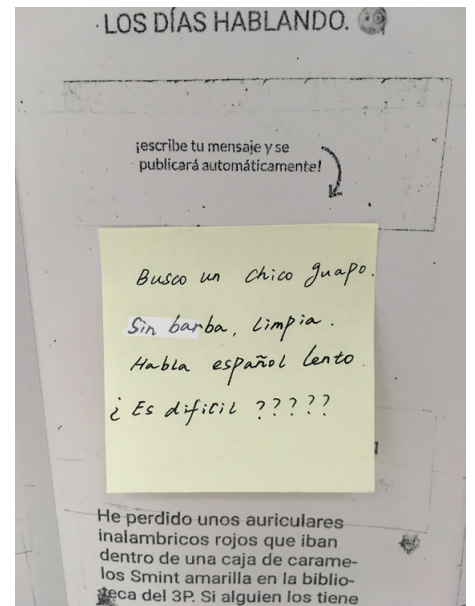 LOS DÍAS HABLANDO.
¡escribe tu mensaje y se
publicará automáticamente!
Busco un chico guapo.
Sin barba, Limpia.
Habla español lento.
¿ Es dificil ?????
He perdido unos auriculares
inalambricos rojos que iban
dentro de una caja de carame-
los Smint amarilla en la biblio-
teca del 3P. Si alguien los tiene